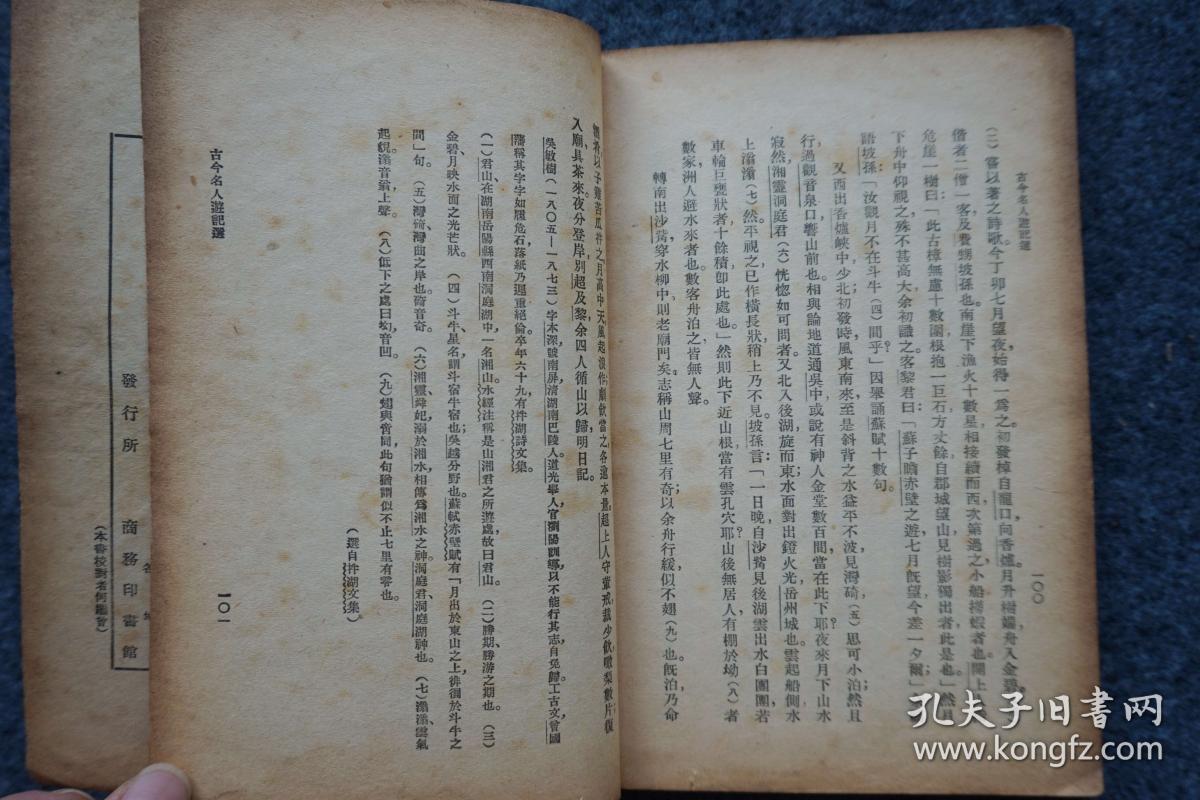 古今名人遊記選
一〇〇
(三)嘗以著之詩歌今丁卯七月望夜始得一爲之初發棹自龍口向香爐月升樹端舟入金碧
偕者二僧一客及費甥坡孫也南崖下漁火十數星相接續而西次第過之小船撈蝦者也開上人
危崖一樹曰「此古樟無慮十數圍根抱一巨石方丈餘自郡城望山見樹影獨出者此是也」然且
下舟中仰視之殊不甚高大余初識之客黎君曰「蘇子瞻赤壁之遊七月旣望今差一夕爾」
語坡孫「汝觀月不在斗牛(四)間乎?」因舉誦蘇賦十數句。
又西出香爐峽中少北初發時風東南來至是斜背之水益平不波見灣碕(五)思可小泊然且
行過觀音泉口響山前也相與論地道通吳中或說有神人金堂數百間當在此下耶?夜來月下山水
寂然湘靈洞庭君(六)恍惚如可問者又北入後湖旋而東水面對出鐙火光岳州城也雲起船側水
上滃滃(七)然平視之已作橫長狀稍上乃不見坡孫言:「一日晚自沙觜見後湖雲出水白團團若
車輪巨甕狀者十餘積卽此處也」然則此下近山根當有雲孔穴耶?山後無居人有棚於坳(八)者
數家洲人避水來者也數客舟泊之皆無人聲。
轉南出沙觜穿水柳中則老廟門矣志稱山周七里有奇;以余舟行緩似不翅(九)也。旣泊乃命
以子雞苦瓜拌之月高中天風起浪作劇飲當之各逾本量超上人守葷戒裁少飲啖梨數片復
入廟具茶來夜分登岸別超及黎余四人循山以歸明日記。
吳敏樹(一八〇五—一八七三)字本深號南屏清湖南巴陵人道光舉人官瀏陽訓導以不能行其志自免歸工古文曾國
藩稱其字字如履危石落紙乃遲重絕倫卒年六十九有柈湖詩文集
(選自柈湖文集)
(一)君山在湖南岳陽縣西南洞庭湖中一名湘山水經注稱是山湘君之所遊處故曰君山。(二)勝期勝游之期也。(三)
金碧月映水面之光芒狀。(四)斗牛星名謂斗宿牛宿也吳越分野也蘇軾赤壁賦有「月出於東山之上徘徊於斗牛之
間」句。(五)灣碕灣曲之岸也碕音奇。(六)湘靈舜妃溺於湘水相傳爲湘水之神洞庭君洞庭湖神也。(七)滃滃雲氣
起貌滃音翁上聲。(八)低下之處曰坳音凹。(九)翅與啻同此句猶謂似不止七里有零也。
古今名人遊記選
一〇一
發行所
商務印書館
各埠
(本書校對者何繼曾)
孔夫子旧书网
www.kongfz.com